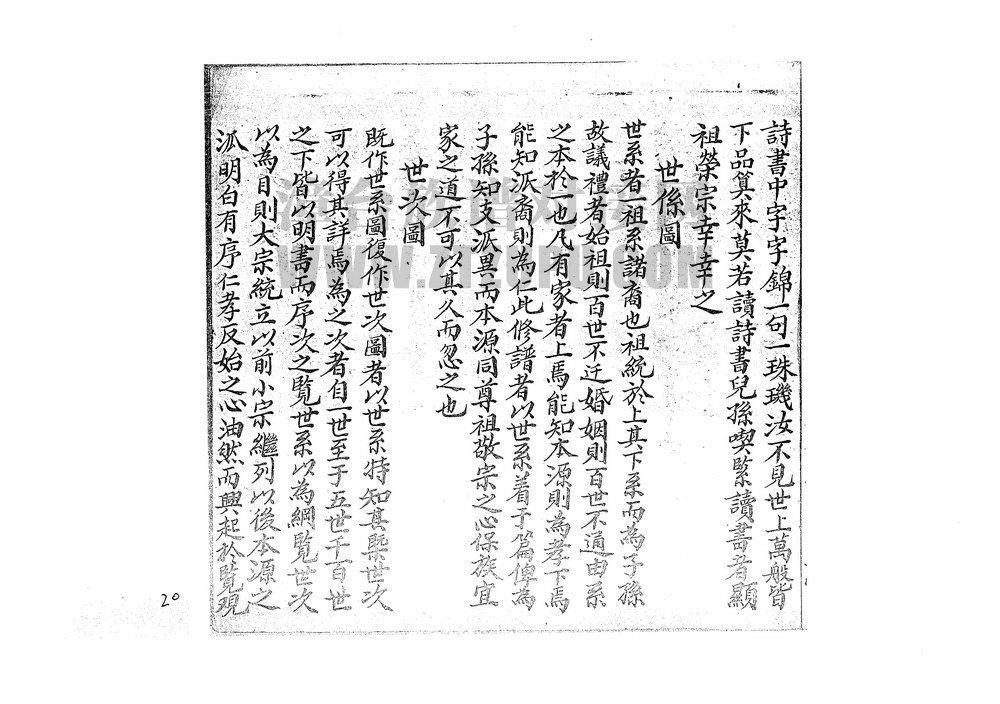 詩書中字字錦一句一珠璣汝不見世上萬般皆
下品算來莫若讀詩書兒孫喫緊讀書者顯
祖榮宗幸幸之
世係圖
世系者一祖系諸裔也祖統於上其下系而為子孫
故議禮者始祖則百世不迁婚姻則百世不通由系
之本於一也凡有家者上焉能知本源則為孝下焉
能知派裔則為仁此修譜者以世系着于篇俾為
子孫知支派異而本源同尊祖敬宗之心保族宜
家之道不可以其久而忽之也
世次圖
既作世系圖復作世次圖者以世系特知其槩世次
可以得其詳焉為之次者自一世至于五世千百世
之下皆以明書而序次之覽世系以為綱覽世次
以為目則大宗統立以前小宗繼列以後本源之
派明白有序仁孝反始之心油然而興起於覽观
20